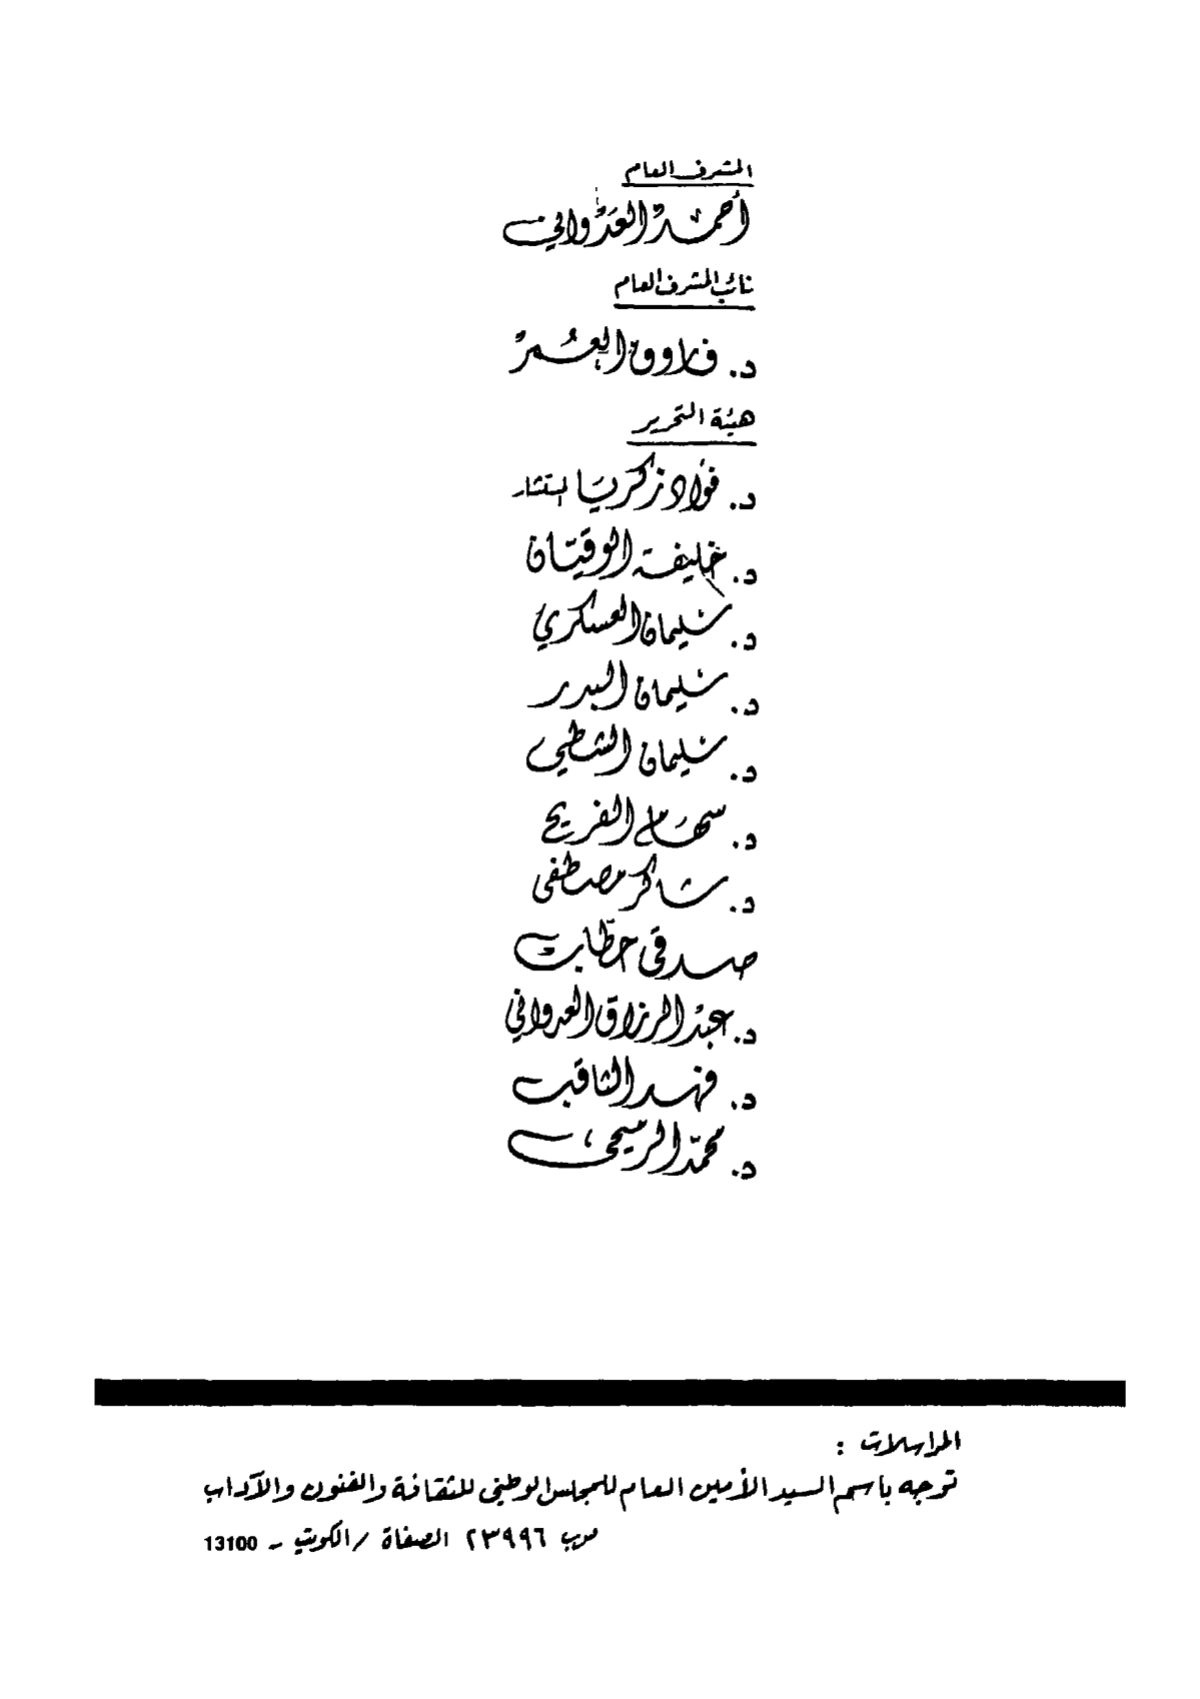 المشرف العام
أحمد العدواني
نائب المشرف العام
د. فاروق العمر
هيئة التحرير
د. فؤاد زكريا المستشار
د. خليفة الوقيان
د. سليمان العسكري
د. سليمان البدر
د. سليمان الشطي
د. سهام الفريح
د. شاكر مصطفى
صدقي حطاب
د. عبد الرزاق العدواني
د. فهد الثاقب
د. محمد الرميحي
المراسلات :
توجه باسم السيد الأمين العام للمجلس الوطني للثقافة والفنون والآداب
ص ب ٢٣٩٩٦ الصفاة / الكويت - 13100